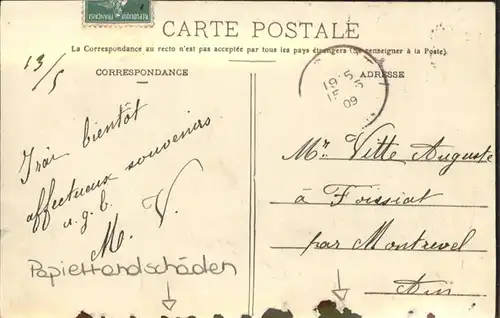 CARTE POSTALE
La Correspondance au recto n'est pas acceptée par tous les pays étrangers (Se renseigner à la Poste).
13/5
CORRESPONDANCE
ADRESSE
19 5 5
15
09
Irai bientôt
affectueux souvenirs
a.g.b.
M. V.
Mr. Vitte Auguste
à Foissiat
par Montrevel
Ain
Papierrandschäden